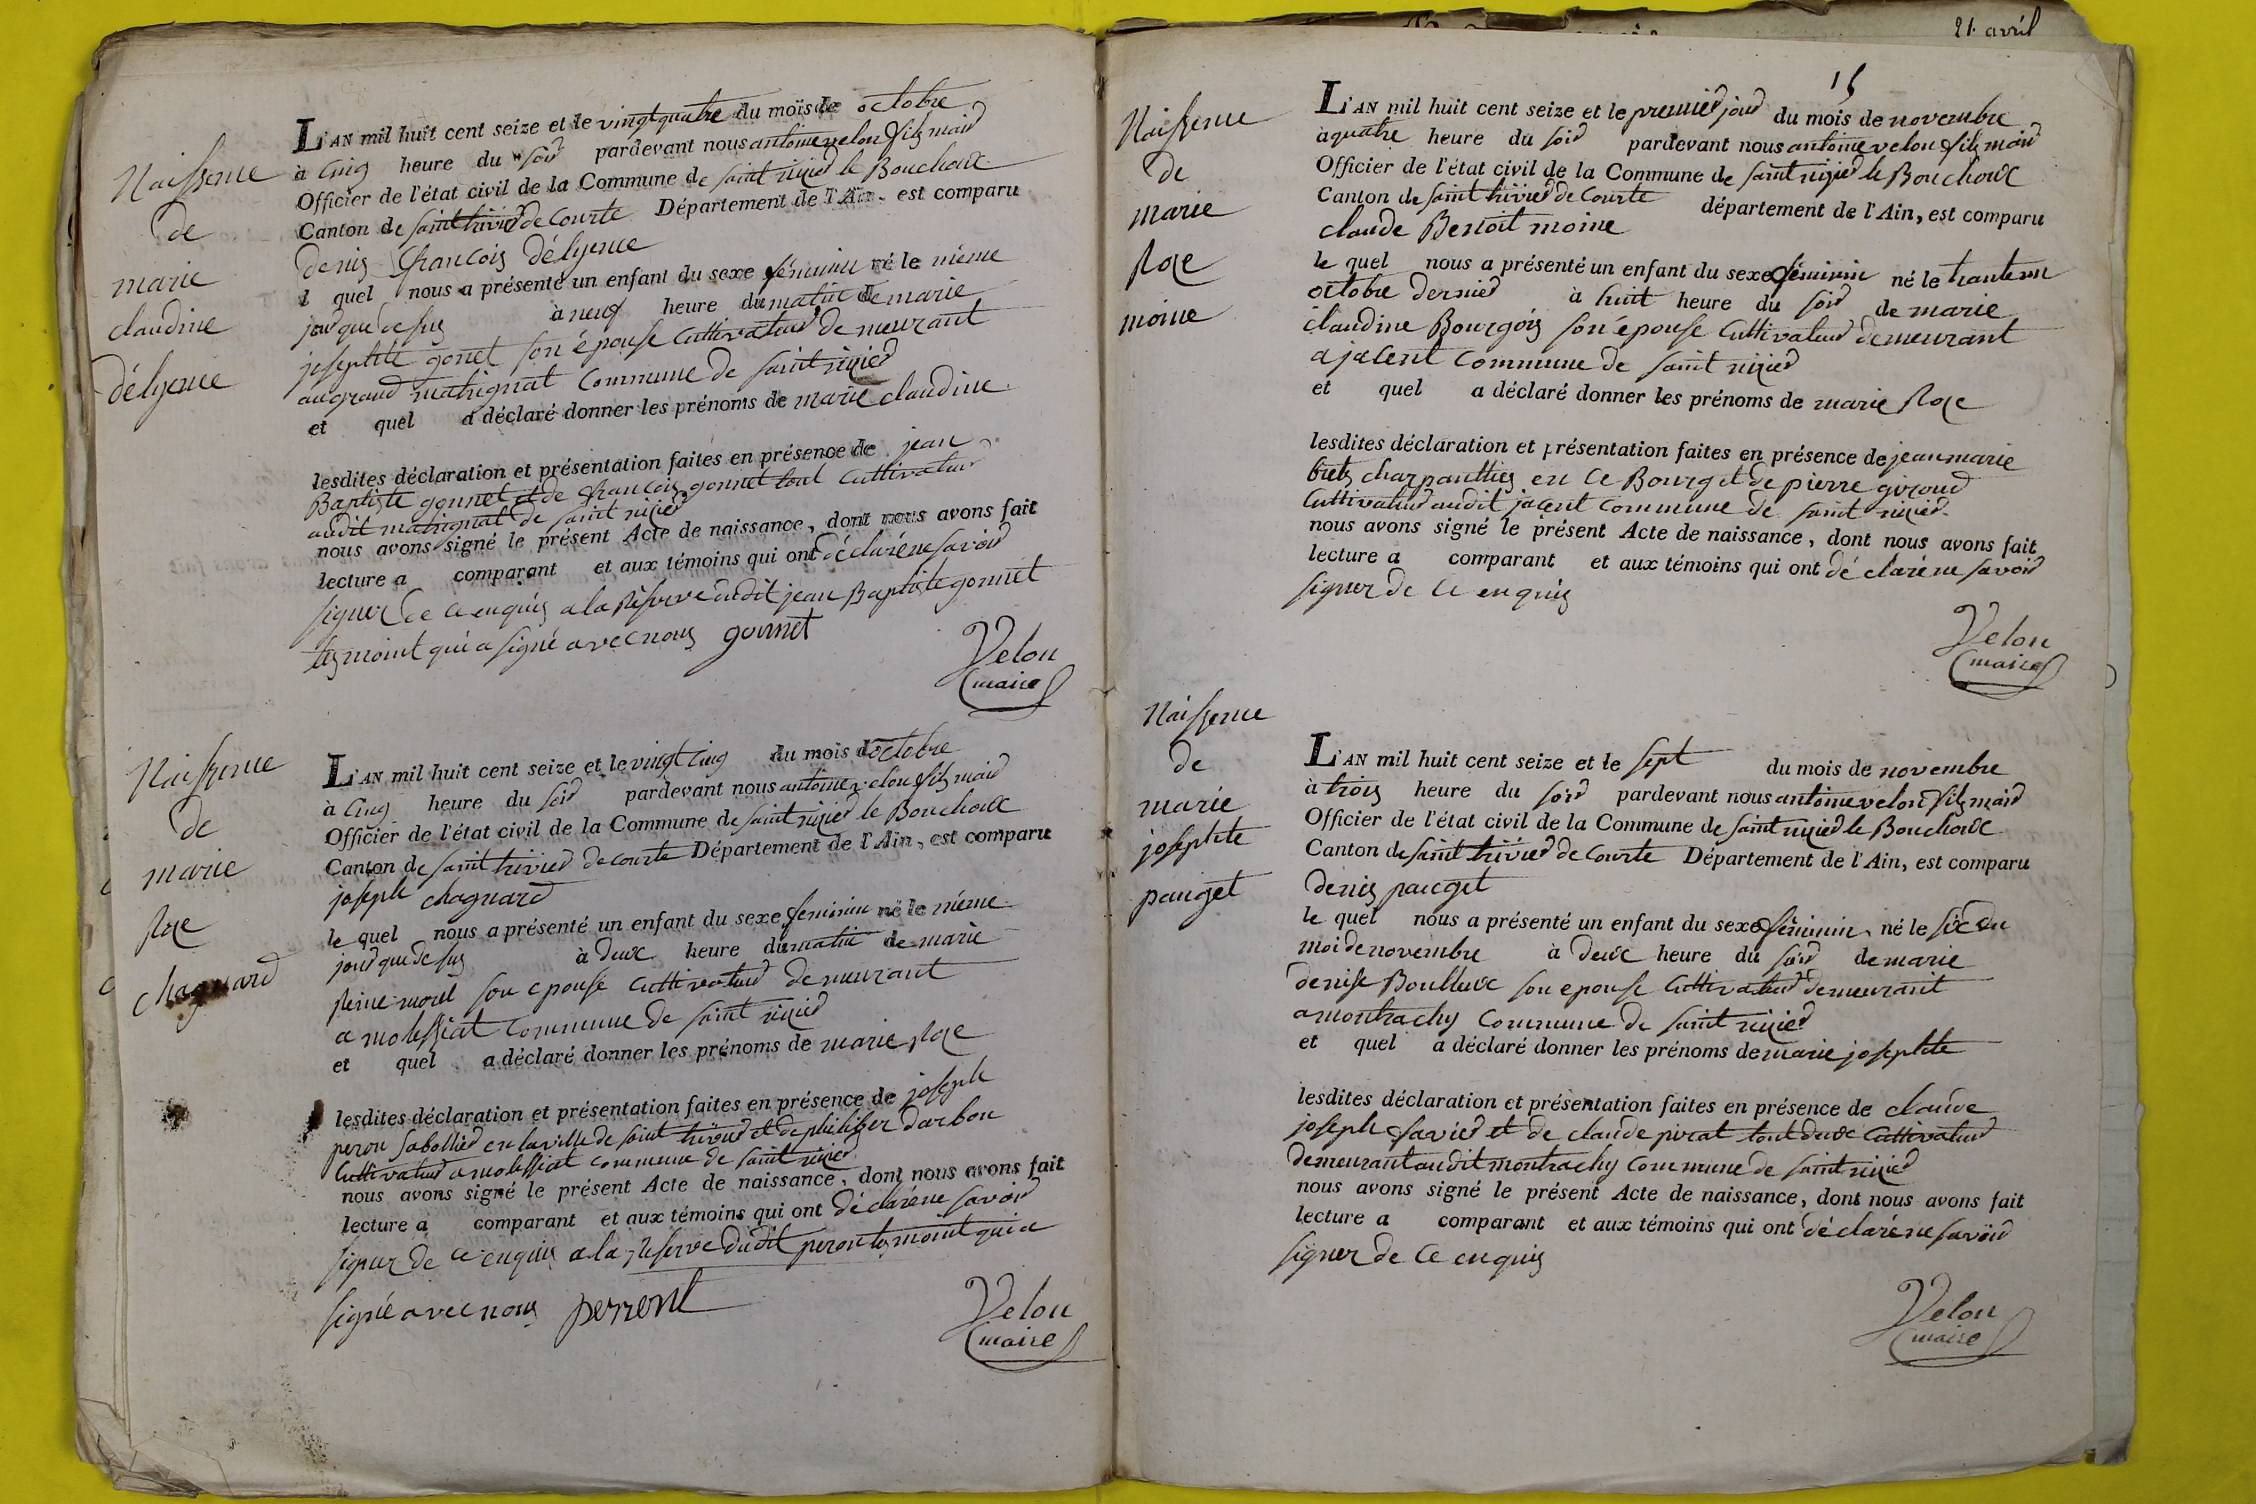 Naissence
de
marie
claudine
délyence
L'AN mil huit cent seize et le vingtquatre du mois de octobre
à cinq heure du soir pardevant nous antoine velon fils maire
Officier de l'état civil de la Commune de saint nizier le Bouchoux
Canton de saint trivier de Courte Département de l'Ain, est comparu
denis françois délyence
l quel nous a présenté un enfant du sexe féminin né le même
jour que desus à neuf heure du matin de marie
josephte gonet son épouse Cultivateur demeurant
au grand matrignat Commune de saint nizier
et quel a déclaré donner les prénoms de marie claudine
lesdites déclaration et présentation faites en présence de jean
Baptiste gonnet et de françois gonnet tout cultivateur
audit matrignat de saint nizier
nous avons signé le présent Acte de naissance, dont nous avons fait
lecture a comparant et aux témoins qui ont déclaré ne savoir
signer de ce enquis a la Réserve dudit jean Baptiste gonnet
tesmoint qui a signé avec nous gonnet
Velon
maire
Naissence
de
marie
Roze
chagnard
L'AN mil huit cent seize et le vingt cinq du mois d'octobre
à cinq heure du soir pardevant nous antoine velon fils maire
Officier de l'état civil de la Commune de saint nizier le Bouchoux
Canton de saint trivier de courte Département de l'Ain, est comparu
joseph chagnard
le quel nous a présenté un enfant du sexe feminin né le même
jour que de sus à deux heure du matin de marie
Reine morel son epouse cultivateur demeurant
a molissiat Commune de saint nizier
et quel a déclaré donner les prénoms de marie Roze
lesdites déclaration et présentation faites en présence de joseph
peron sabottier en la ville de saint trivier et de philiber darbon
Cultivateur a molissiat commune de saint nizier
nous avons signé le présent Acte de naissance, dont nous avons fait
lecture a comparant et aux témoins qui ont déclaré ne savoir
signer de ce enquis a la Reserve dudit peron tesmoint qui a
signé avec nous perront
Velon
maire
21 avril
15
Naissence
de
marie
Roze
moine
L'AN mil huit cent seize et le premier jour du mois de novembre
à quatre heure du soir pardevant nous antoine velon fils maire
Officier de l'état civil de la Commune de saint nizier le Bouchoux
Canton de saint trivier de Courte département de l'Ain, est comparu
claude Benoit moine
le quel nous a présenté un enfant du sexe féminin né le trante un
octobre dernier à huit heure du soir de marie
claudine Bourgois son épouse Cultivateur demeurant
a jacent Commune de saint nizier
et quel a déclaré donner les prénoms de marie Roze
lesdites déclaration et présentation faites en présence de jean marie
charpantties en ce Bourg et de pierre guroud
Cultivateur audit jacent commune de saint nizier
nous avons signé le présent Acte de naissance, dont nous avons fait
lecture a comparant et aux témoins qui ont déclaré ne savoir
signer de ce enquis
Velon
maire
Naissence
de
marie
josephte
pauget
L'AN mil huit cent seize et le sept du mois de novembre
à trois heure du soir pardevant nous antoine velon fils maire
Officier de l'état civil de la Commune de saint nizier le Bouchoux
Canton de saint trivier de Courte Département de l'Ain, est comparu
denis paucget
le quel nous a présenté un enfant du sexe féminin né le six du
moi de novembre à deux heure du soir de marie
denise Boulleux son epouse Cultivateur demeurant
a montrachy Commune de saint nizier
et quel a déclaré donner les prénoms de marie josephte
lesdites déclaration et présentation faites en présence de claude
joseph favier et de claude pirat tout deux Cultivateur
demeurant audit montrachy Commune de saint nizier
nous avons signé le présent Acte de naissance, dont nous avons fait
lecture a comparant et aux témoins qui ont déclaré ne savoir
signer de ce enquis
Velon
maire